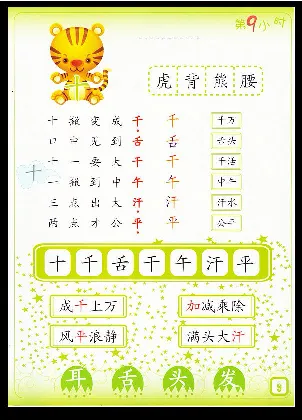 第9小时
虎背熊腰
十撇变成千。 千 千万
口中无到舌 舌 舌头
十一要大干 干 干活
一撇到中午 午 中午
三点出大汗 汗 汗水
两点才公平。 平 公平
十
十千舌干午汗平
成千上万 加减乘除
风平浪静 满头大汗
耳舌头发
9